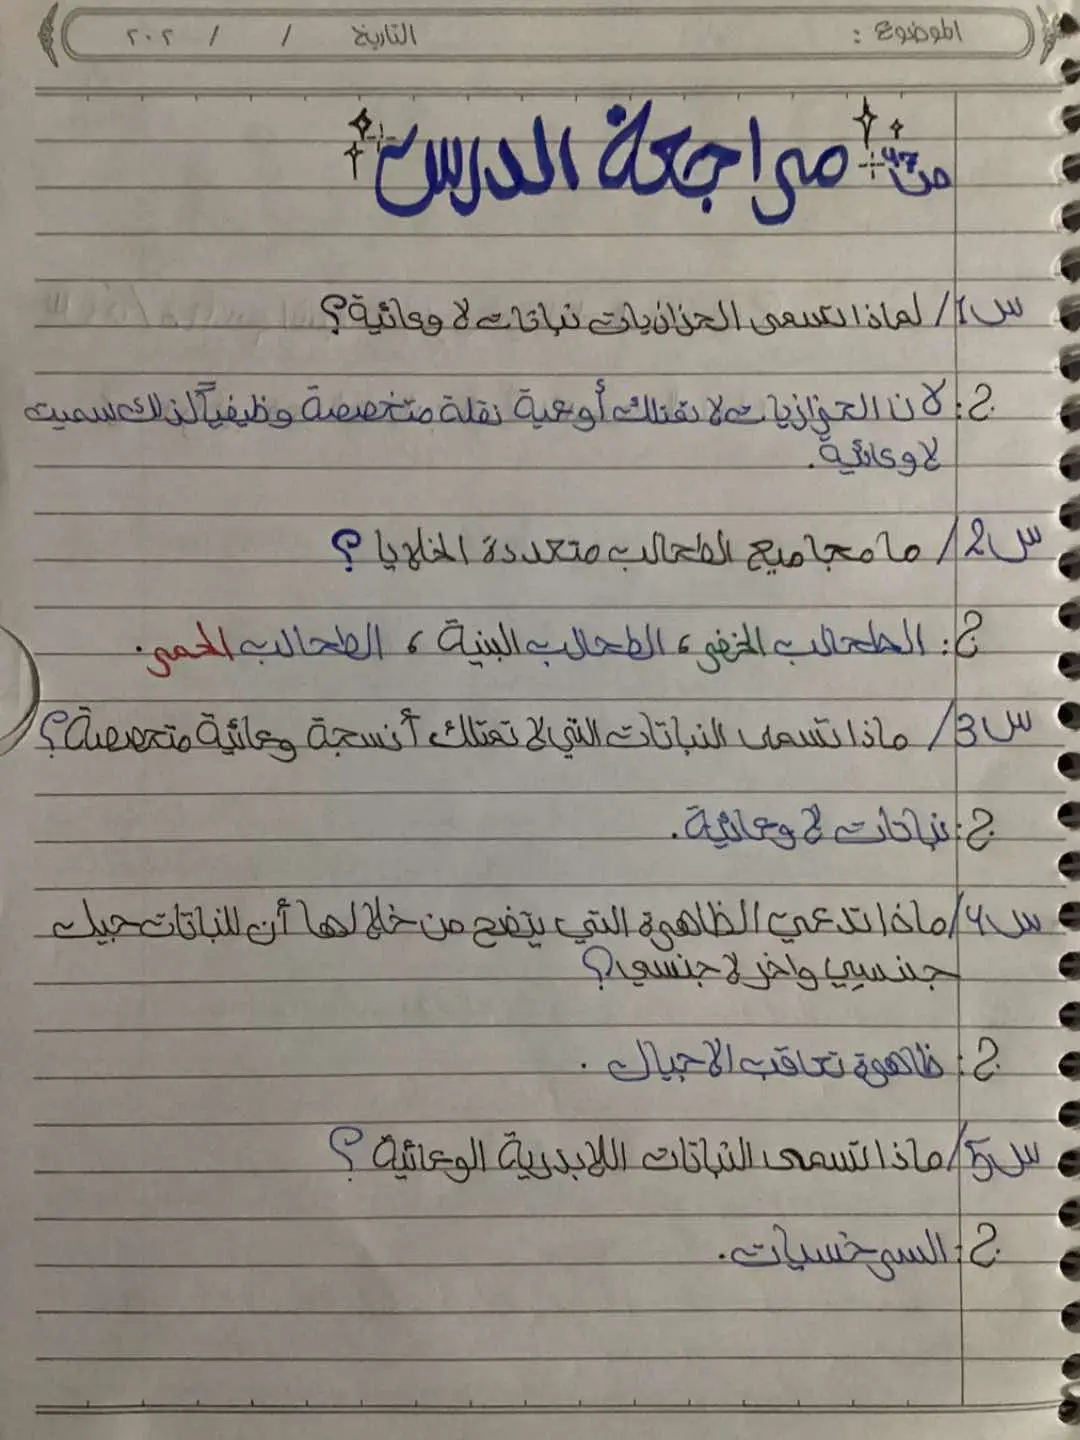 الموضوع : التاريخ / / ٢٠٢
ص 47 مراجعة الدرس
س1/ لماذا تسمى الحزازيات نباتات لا وعائية؟
ج: لان الحزازيات لا تمتلك أوعية نقلة متخصصة وظيفياً لذلك سميت
لا وعائية.
س2/ ما مجاميع الطحالب متعددة الخلايا ؟
ج: الطحالب الخضر ، الطحالب البنية ، الطحالب الحمر.
س3/ ماذا تسمى النباتات التي لا تمتلك أنسجة وعائية متخصصة؟
ج: نباتات لا وعائية.
س4/ ماذا تدعى الظاهرة التي يتضح من خلالها أن للنباتات جيل
جنسي واخر لا جنسي؟
ج: ظاهرة تعاقب الاجيال .
س5/ ماذا تسمى النباتات اللابذرية الوعائية ؟
ج: السرخسيات.